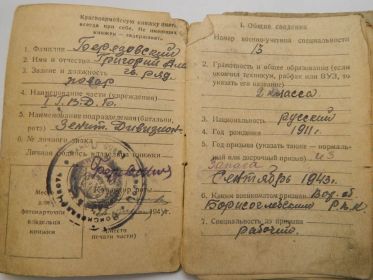 Красноармейскую книжку иметь
всегда при себе. Не имеющих
книжек — задерживать.
1. Фамилия Березовский
2. Имя и отчество Григорий
3. Звание и должность гв. ряд.
повар
4. Наименование части (учреждения)
5. Наименование подразделения (батальон,
рота) Зенит. Дивизион
6. № личного знака
Личная подпись владельца книжки
Место
для
фотокарточки
владельца
книжки
Место
печати части)
I. Общие сведения
Номер военно-учетной специальности
13
2. Грамотность и общее образование (если
окончил техникум, рабфак или ВУЗ, то
указать это название)
2 класса
3. Национальность русский
4. Год рождения 1911 г.
5. Год призыва (указать также — нормаль-
ный или досрочный призыв) из
запаса
Сентябрь 1943 г.
6. Каким военкоматом призван Вор. об
Борисоглебский Р.В.К
7. Специальность до призыва
рабочий